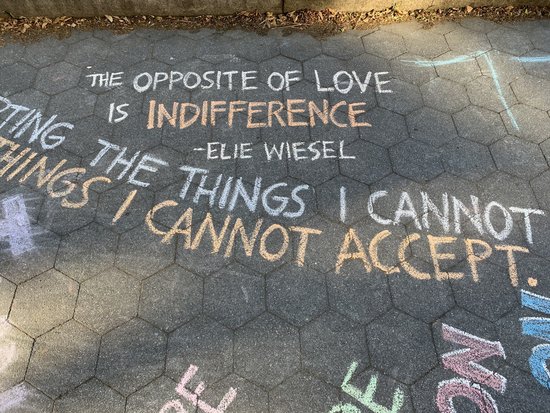 THE OPPOSITE OF LOVE
IS INDIFFERENCE
-ELIE WIESEL
PTING THE THINGS I CANNOT
THINGS I CANNOT ACCEPT.